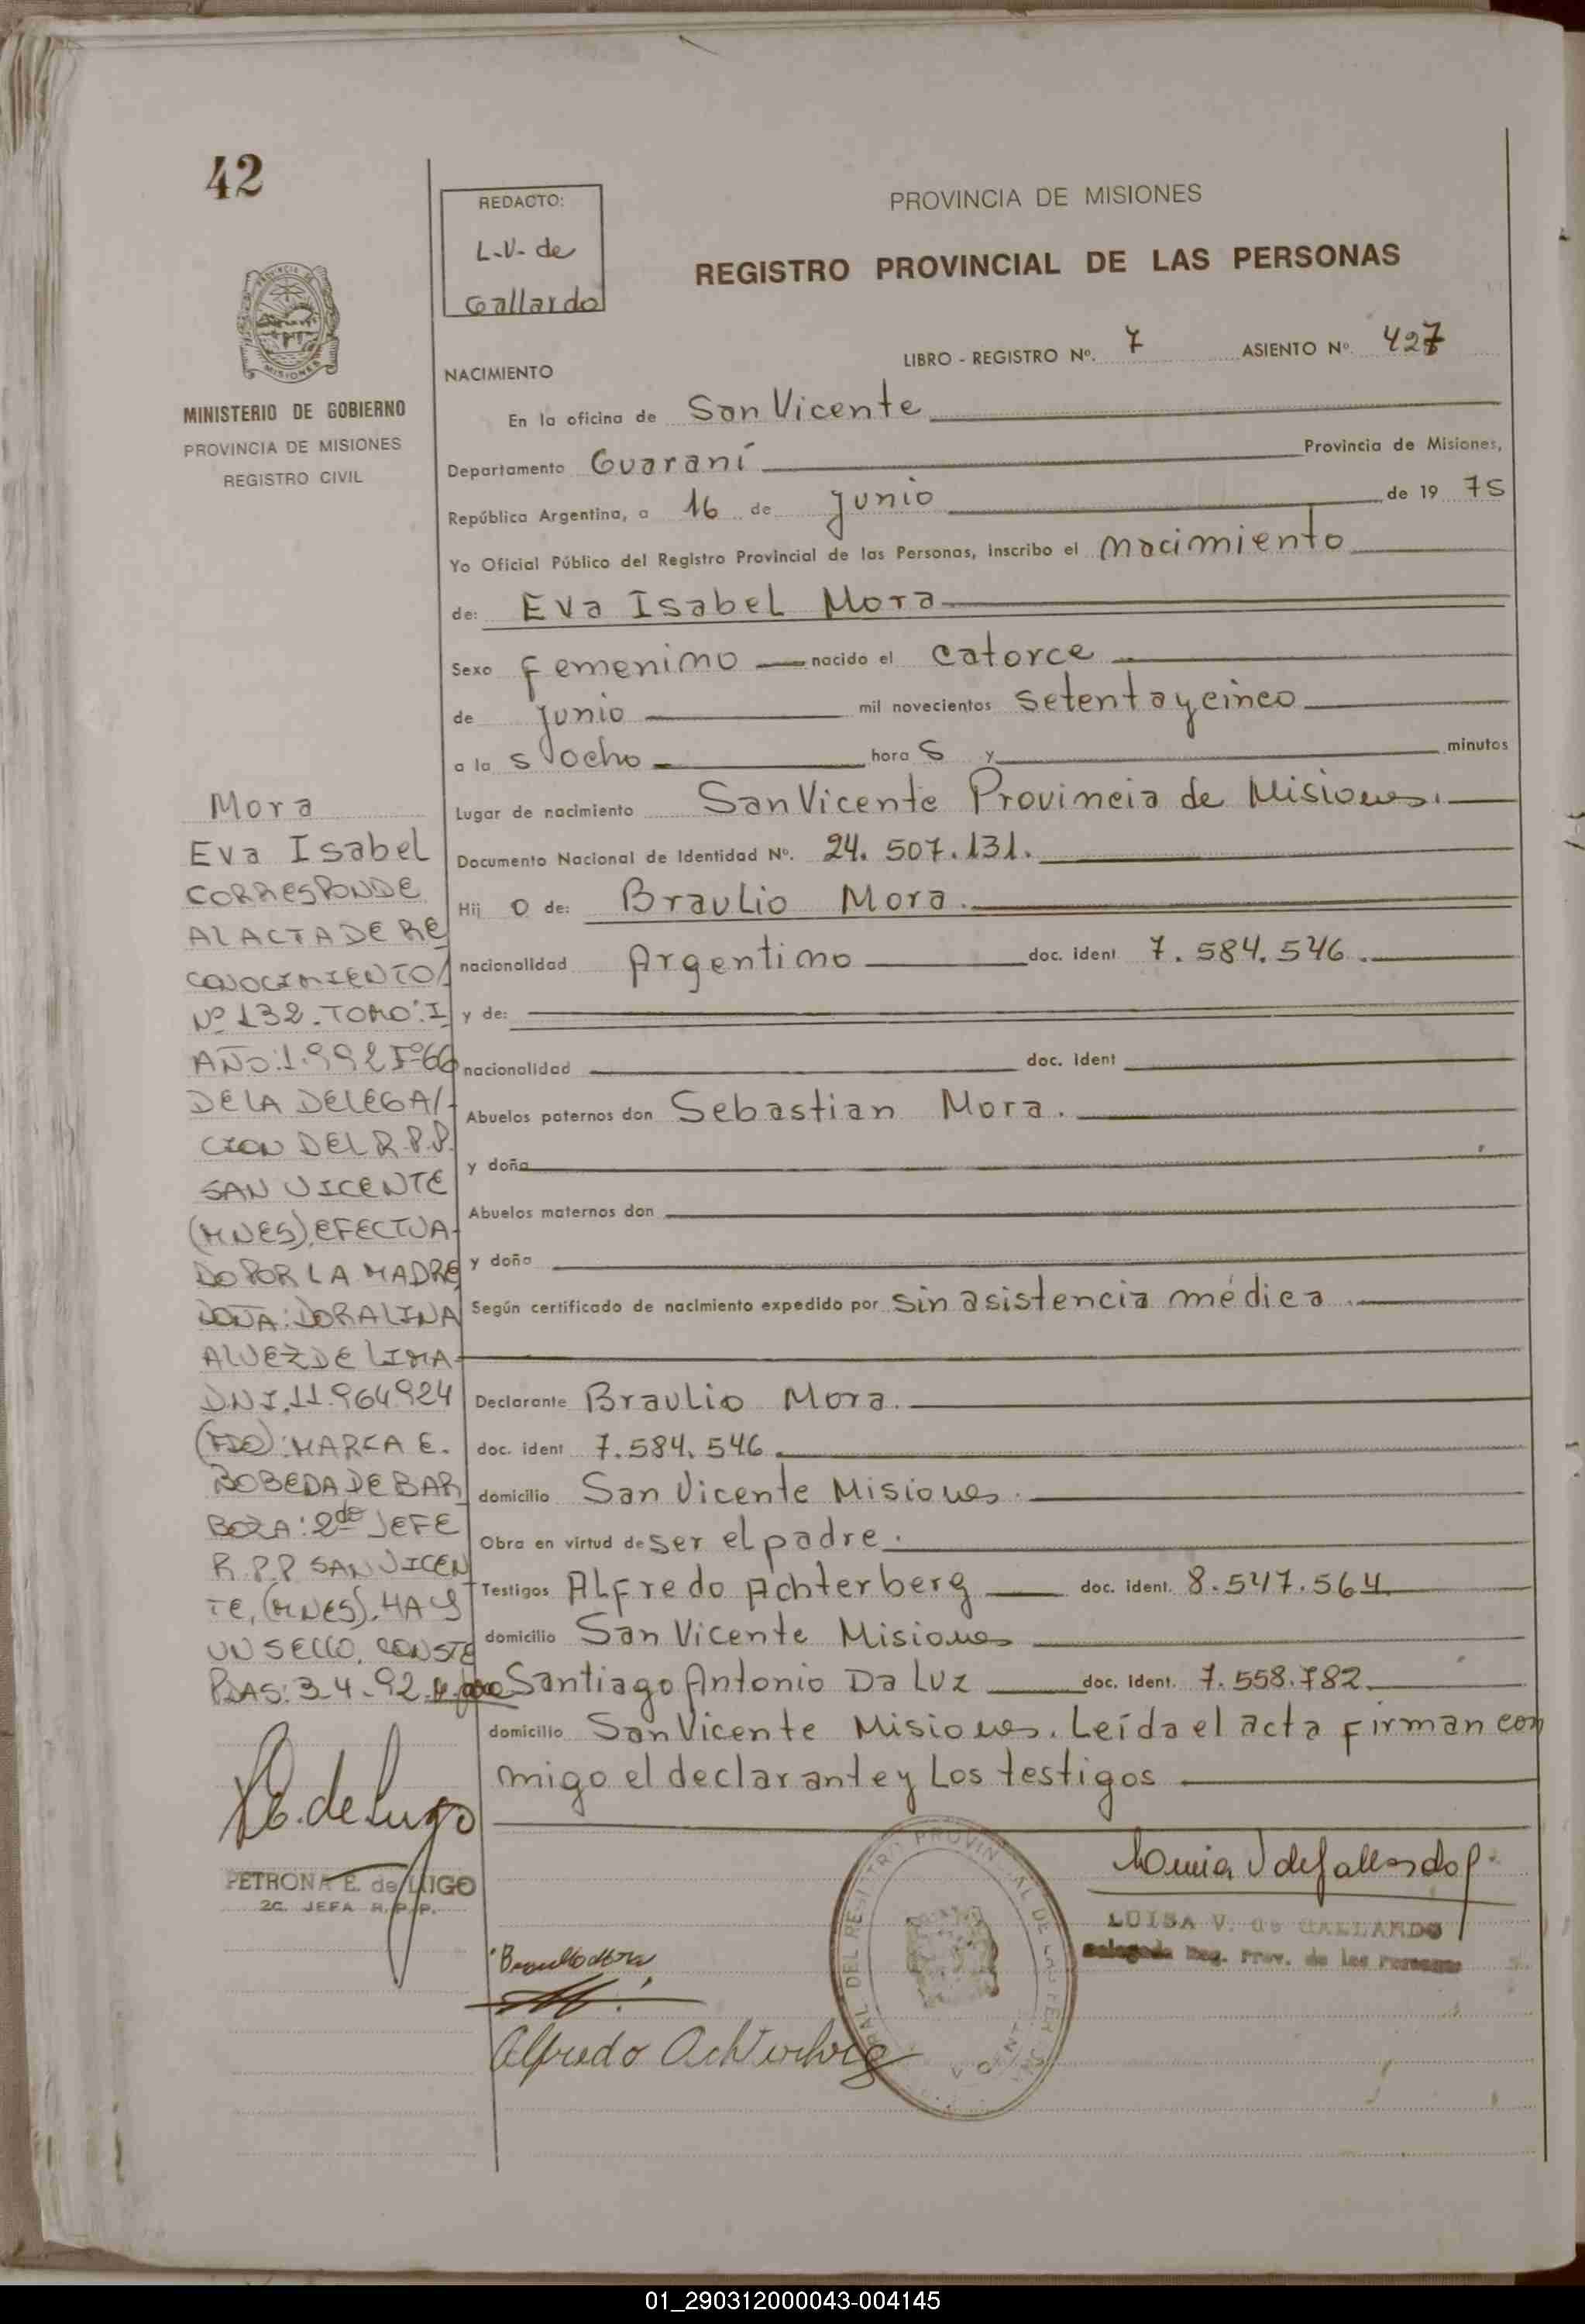 42
REDACTO:
L.V. de
Gallardo
PROVINCIA DE MISIONES
REGISTRO PROVINCIAL DE LAS PERSONAS
LIBRO - REGISTRO Nº. 7 ASIENTO Nº 427
MINISTERIO DE GOBIERNO
PROVINCIA DE MISIONES
REGISTRO CIVIL
NACIMIENTO
En la oficina de San Vicente
Departamento Guaraní Provincia de Misiones,
República Argentina, a 16 de junio de 19 75
Yo Oficial Público del Registro Provincial de las Personas, inscribo el nacimiento
de: Eva Isabel Mora
Sexo femenino nacido el catorce
de junio mil novecientos setentaycinco
a la s ocho hora s y minutos
Lugar de nacimiento San Vicente Provincia de Misiones.
Documento Nacional de Identidad Nº. 24.507.131.
Hij o de: Braulio Mora.
nacionalidad Argentino doc. ident 7.584.546.
y de:
nacionalidad doc. ident
Abuelos paternos don Sebastian Mora.
y doña
Abuelos maternos don
y doña
Según certificado de nacimiento expedido por sin asistencia médica.
Declarante Braulio Mora.
doc. ident 7.584.546
domicilio San Vicente Misiones.
Obra en virtud de ser el padre.
Testigos Alfredo Achterberg doc. ident. 8.547.564
domicilio San Vicente Misiones
Santiago Antonio Da Luz doc. ident. 7.558.782
domicilio San Vicente Misiones. Leída el acta firman con
migo el declarante y Los testigos
Mora
Eva Isabel
CORRESPONDE
AL ACTA DE RE
CONOCIMIENTO/
Nº 132. TOMO: I
AÑO: 1.992 Fº 66
DE LA DELEGA/-
CION DEL R.P.P.
SAN VICENTE
(MNES). EFECTUA-
DO POR LA MADRE
DOÑA: DORALINA
ALVEZ DE LIMA-
D.N.I. 11.964.924
(FDO): MARIA E.
BOBEDA DE BAR
BOZA: 2da JEFE
R.P.P SAN VICEN
TE, (MNES). HAY
UN SELLO. CONSTE
PDAS: 3-4-92
E. de Lugo
PETRONA E. de LUGO
2a. JEFA R.P.P.
Braulio Mora
Alfredo Achterberg
LUISA V. de GALLARDO
Delegada Reg. Prov. de las Personas
01_290312000043-004145